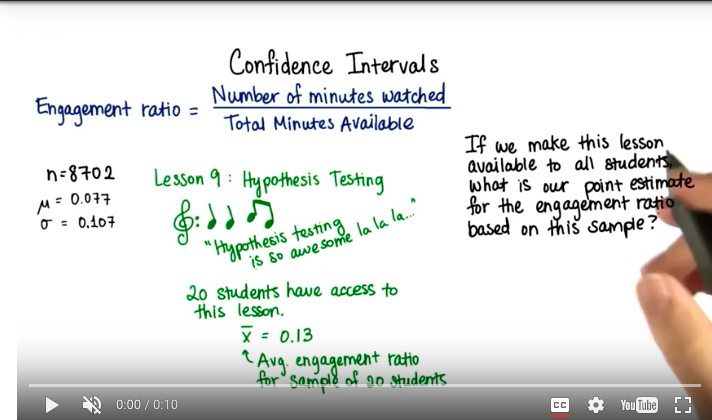 Confidence Intervals
Engagement ratio = Number of minutes watched
Total Minutes Available
n=8702
μ = 0.077
σ = 0.107
Lesson 9: Hypothesis Testing
"Hypothesis testing
is so awesome la la la..."
20 students have access to
this lesson.
x̄ = 0.13
↑ Avg. engagement ratio
for sample of 20 students
If we make this lesson
available to all students,
what is our point estimate
for the engagement ratio
based on this sample?
0:00 / 0:10
CC
YouTube